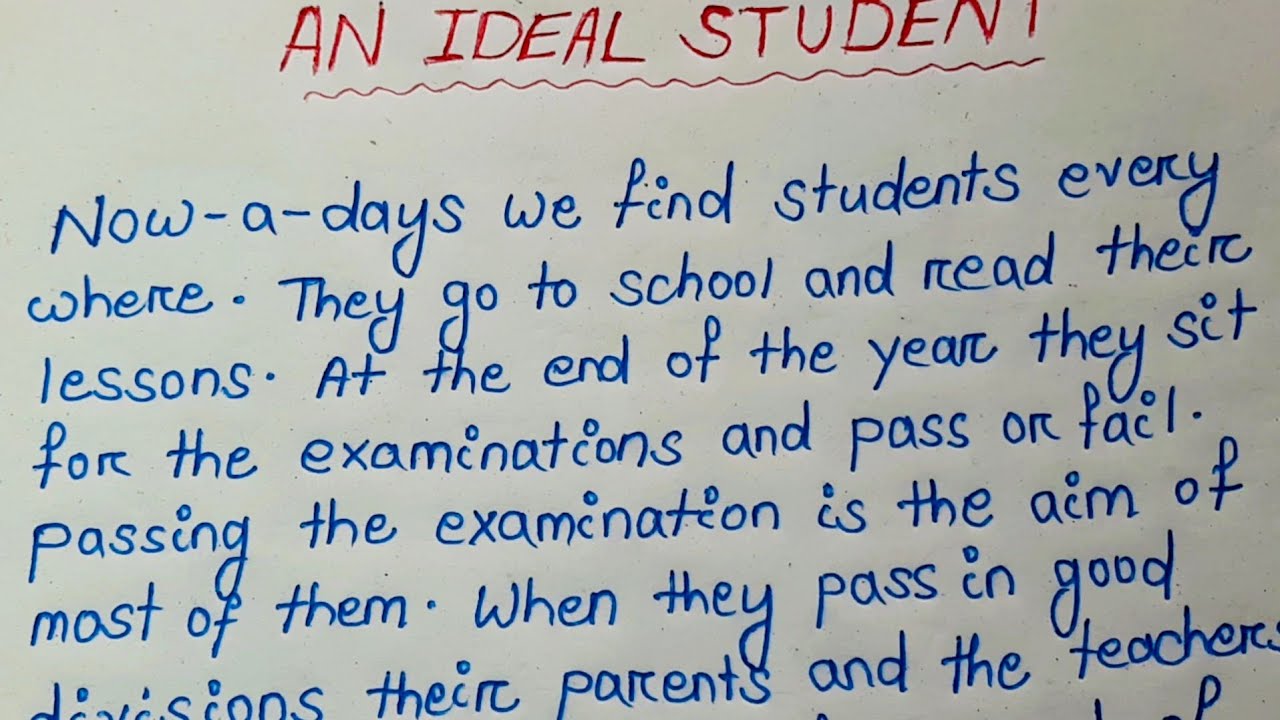 AN IDEAL STUDENT
Now-a-days we find students every
where. They go to school and read their
lessons. At the end of the year they sit
for the examinations and pass or fail.
passing the examination is the aim of
most of them. When they pass in good
divisions their parents and the teachers
of